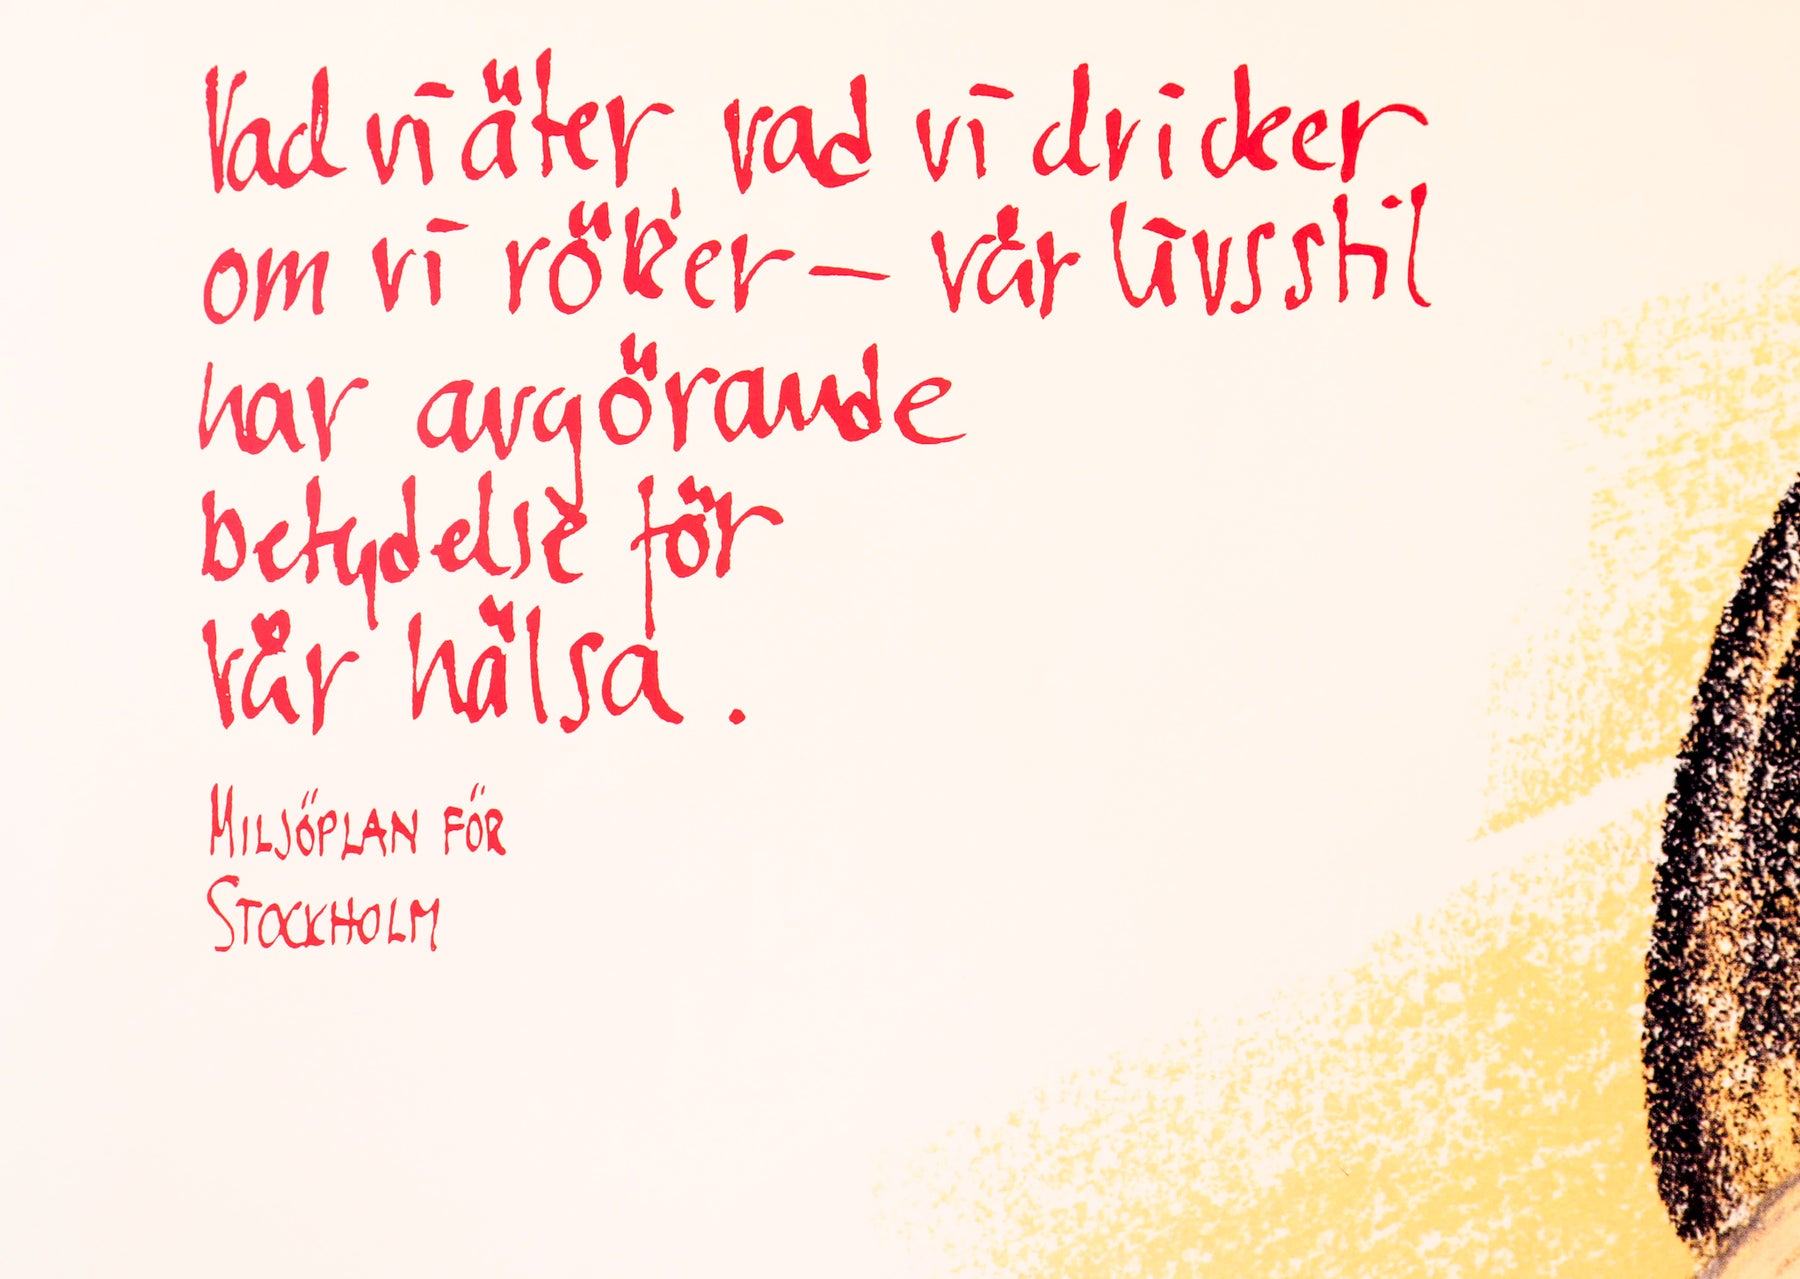 Vad vi äter, vad vi dricker
om vi röker – vår livsstil
har avgörande
betydelse för
vår hälsa.
MILJÖPLAN FÖR
STOCKHOLM